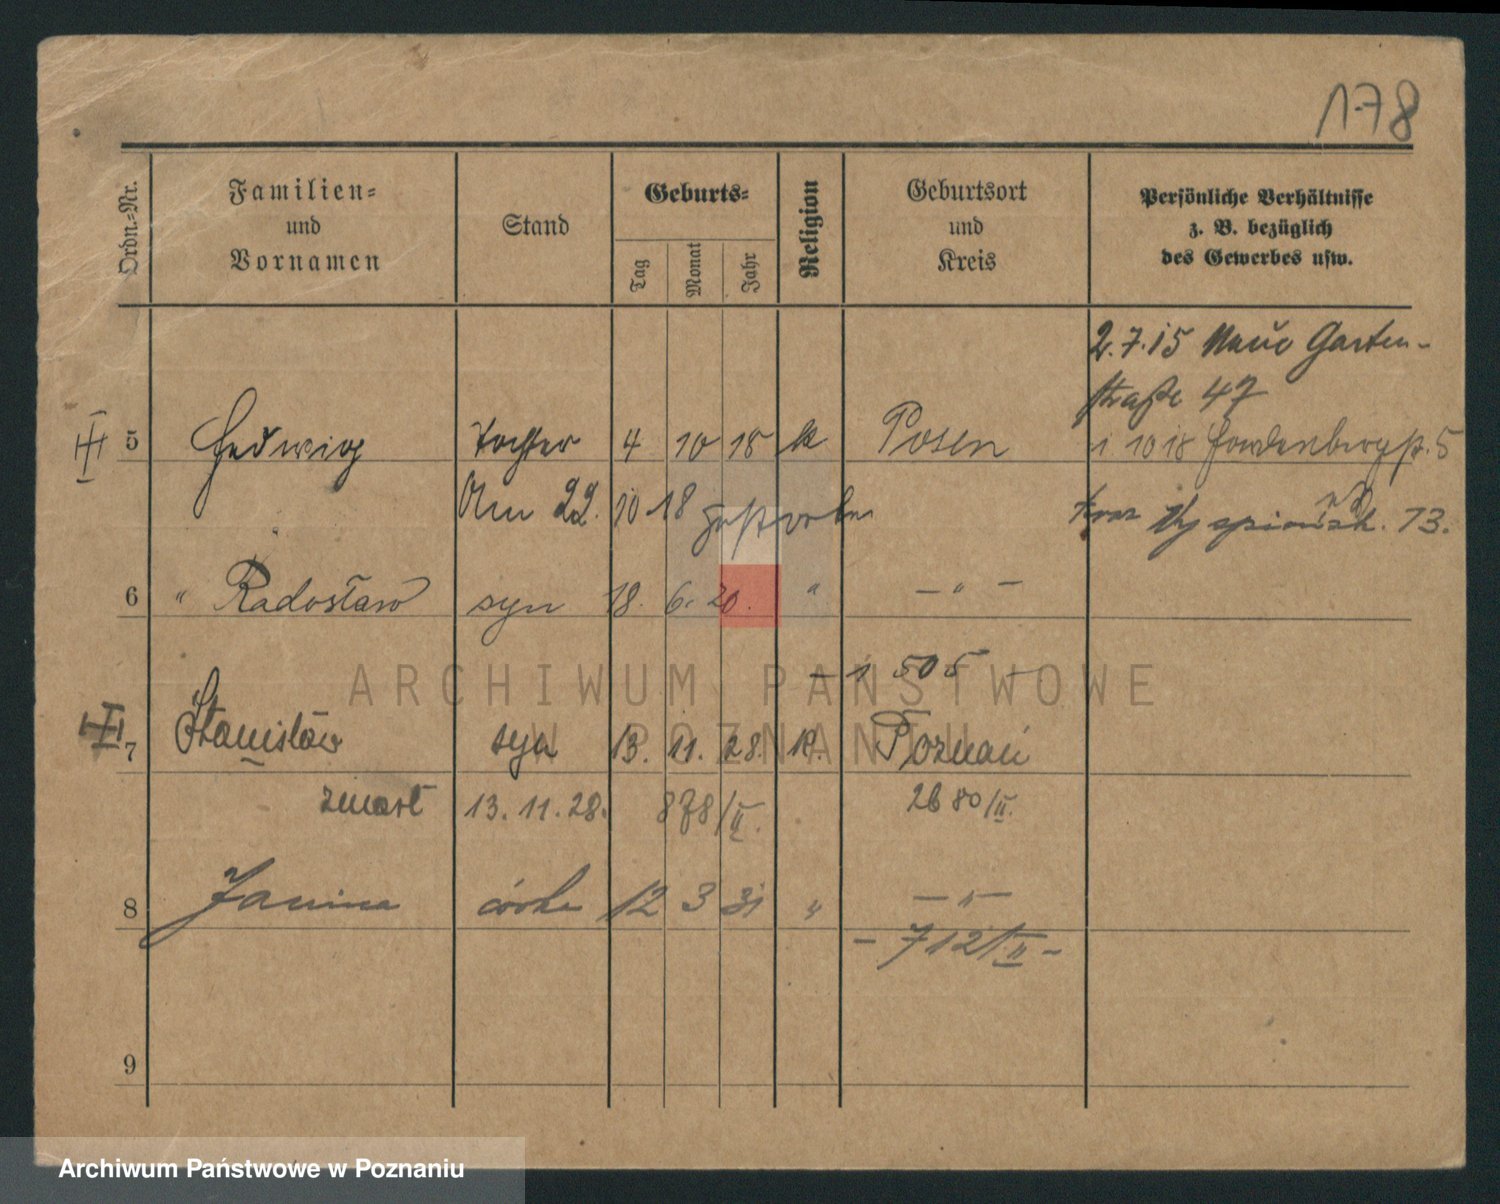 178
Ordn.-Nr.
Familien-
und
Vornamen
Stand
Geburts-
Tag
Monat
Jahr
Religion
Geburtsort
und
Kreis
Persönliche Verhältnisse
z. B. bezüglich
des Gewerbes usw.
2.7.15 Neue Garten-
straße 47
5 Hedwig Tochter 4 10 18 k Posen
10 18 5
Am 22. 10 18 gestorben
13.
6 " Radosław syn 18. 6. 20. " — " —
— 1 505 —
7 Stanisław syn 13. 11. 28. k. Poznań
zmarł 13.11.28. 878/II. 2680/II.
8 Janina córka 12 3 31 " — " —
— 712/II —
9
ARCHIWUM PAŃSTWOWE
W POZNANIU
Archiwum Państwowe w Poznaniu